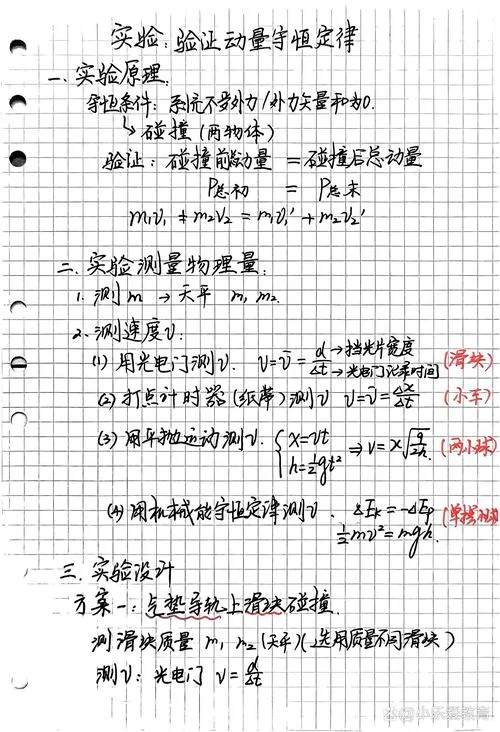 实验:验证动量守恒定律
一、实验原理:
守恒条件:系统不受外力/外力矢量和为0.
↳碰撞(两物体)
验证:碰撞前总动量 = 碰撞后总动量
P总初 = P总末
m₁v₁ + m₂v₂ = m₁v₁' + m₂v₂'
二、实验测量物理量:
1.测m → 天平 m₁ m₂.
2.测速度v.
(1)用光电门测v. v=v̄=d/Δt →挡光片宽度 →光电门记录时间 (滑块)
(2)打点计时器(纸带)测v v=v̄=Δx/Δt (小车)
(3)用平抛运动测v. { x=vt h=½gt² ⇒ v=x√(g/2h). (两小球)
(4)用机械能守恒定律测v. ΔEk=-ΔEp ½mv²=mgh. (单摆小球)
三、实验设计
方案一:气垫导轨上滑块碰撞.
测滑块质量 m₁ m₂(天平)(选用质量不同滑块)
测v:光电门 v=d/Δt
@小沃爱教育